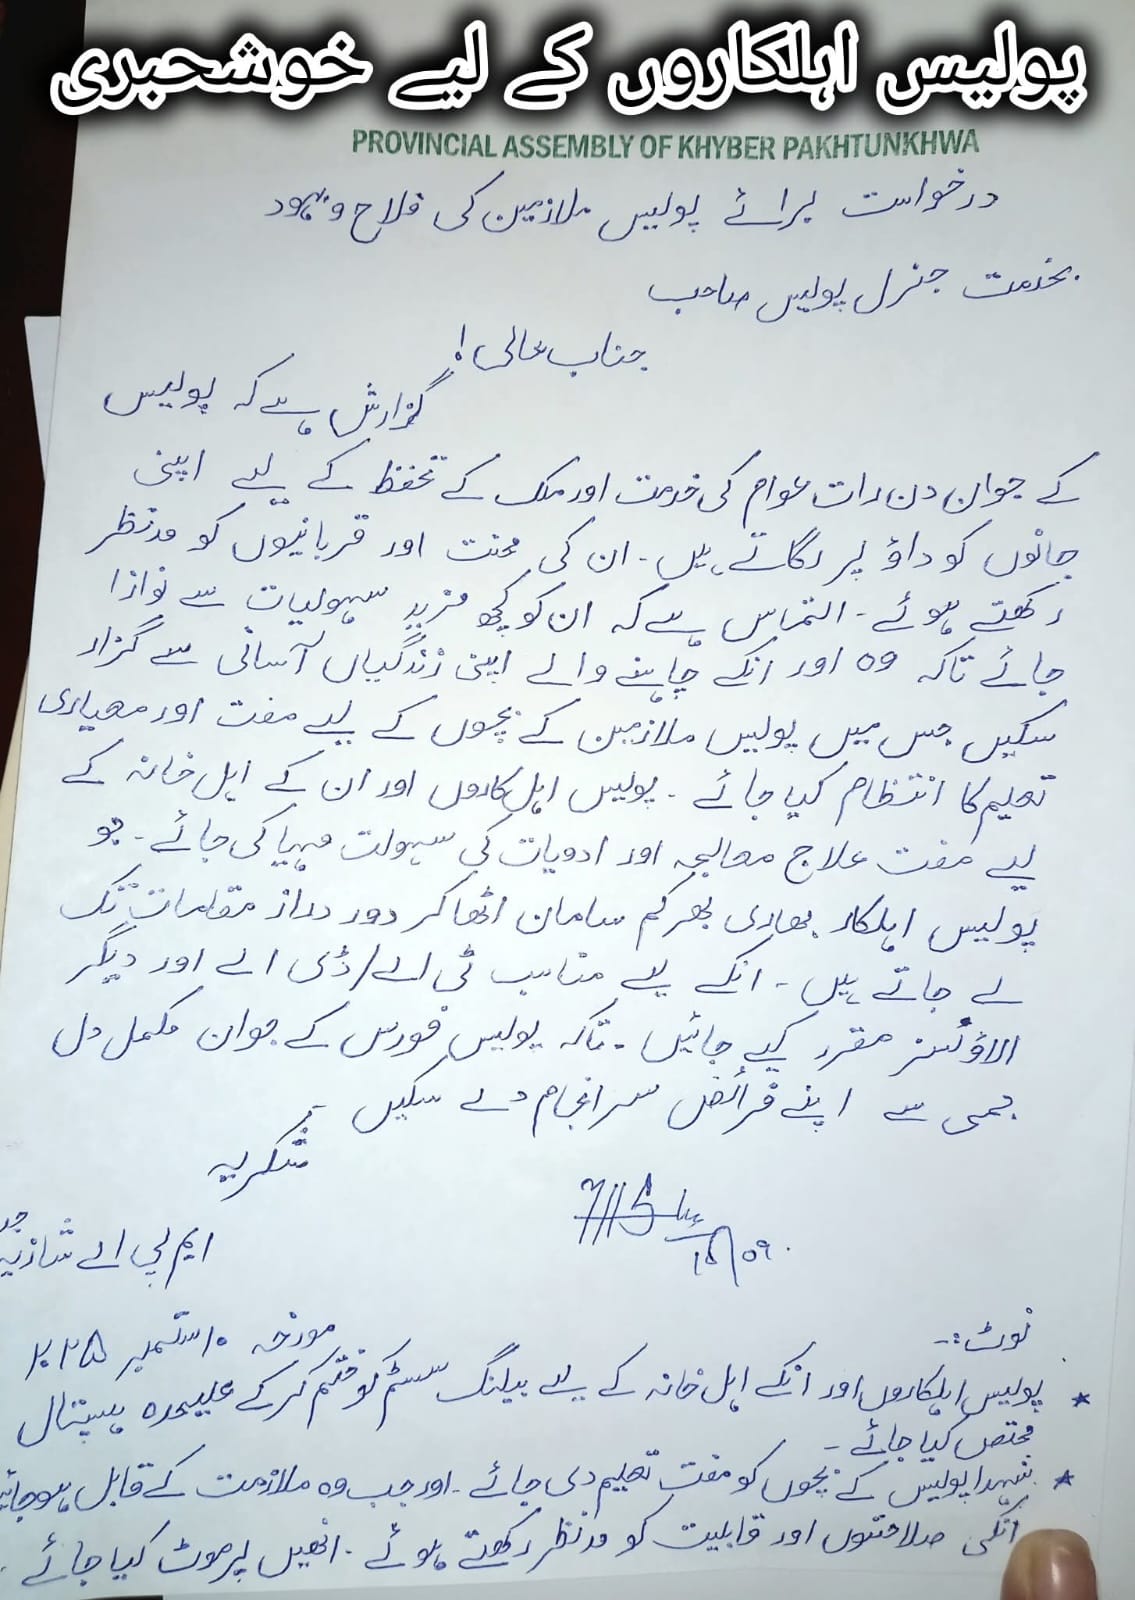 پولیس اہلکاروں کے لیے خوشخبری
PROVINCIAL ASSEMBLY OF KHYBER PAKHTUNKHWA
درخواست برائے پولیس ملازمین کی فلاح و بہبود
بخدمت جنرل پولیس صاحب
جناب عالی!
گزارش ہے کہ پولیس
کے جوان دن رات عوام کی خدمت اور ملک کے تحفظ کے لیے اپنی
جانوں کو داؤ پر لگاتے ہیں۔ ان کی محنت اور قربانیوں کو مدنظر
رکھتے ہوئے۔ التماس ہے کہ ان کو کچھ مزید سہولیات سے نوازا
جائے تاکہ وہ اور انکے چاہنے والے اپنی زندگیاں آسانی سے گزار
سکیں جس میں پولیس ملازمین کے بچوں کے لیے مفت اور معیاری
تعلیم کا انتظام کیا جائے۔ پولیس اہل کاروں اور ان کے اہل خانہ کے
لیے مفت علاج معالجہ اور ادویات کی سہولت مہیا کی جائے۔ جو
پولیس اہلکار بھاری بھرکم سامان اٹھا کر دور دراز مقامات تک
لے جاتے ہیں۔ انکے لیے مناسب ٹی اے/ڈی اے اور دیگر
الاؤنسز مقرر کیے جائیں۔ تاکہ پولیس فورس کے جوان مکمل دل
جمی سے اپنے فرائض سرانجام دے سکیں۔
شکریہ
10/09.
ایم پی اے شازیہ
مورخہ ۱۰ ستمبر ۲۰۲۵
نوٹ:-
* پولیس اہلکاروں اور انکے اہل خانہ کے لیے بیلنگ سسٹم کو ختم کر کے علیحدہ ہسپتال
مختص کیا جائے۔
* شہدا پولیس کے بچوں کو مفت تعلیم دی جائے۔ اور جب وہ ملازمت کے قابل ہو جائیں
انکی صلاحتوں اور قابلیت کو مدنظر رکھتے ہوئے۔ انھیں پرموٹ کیا جائے۔